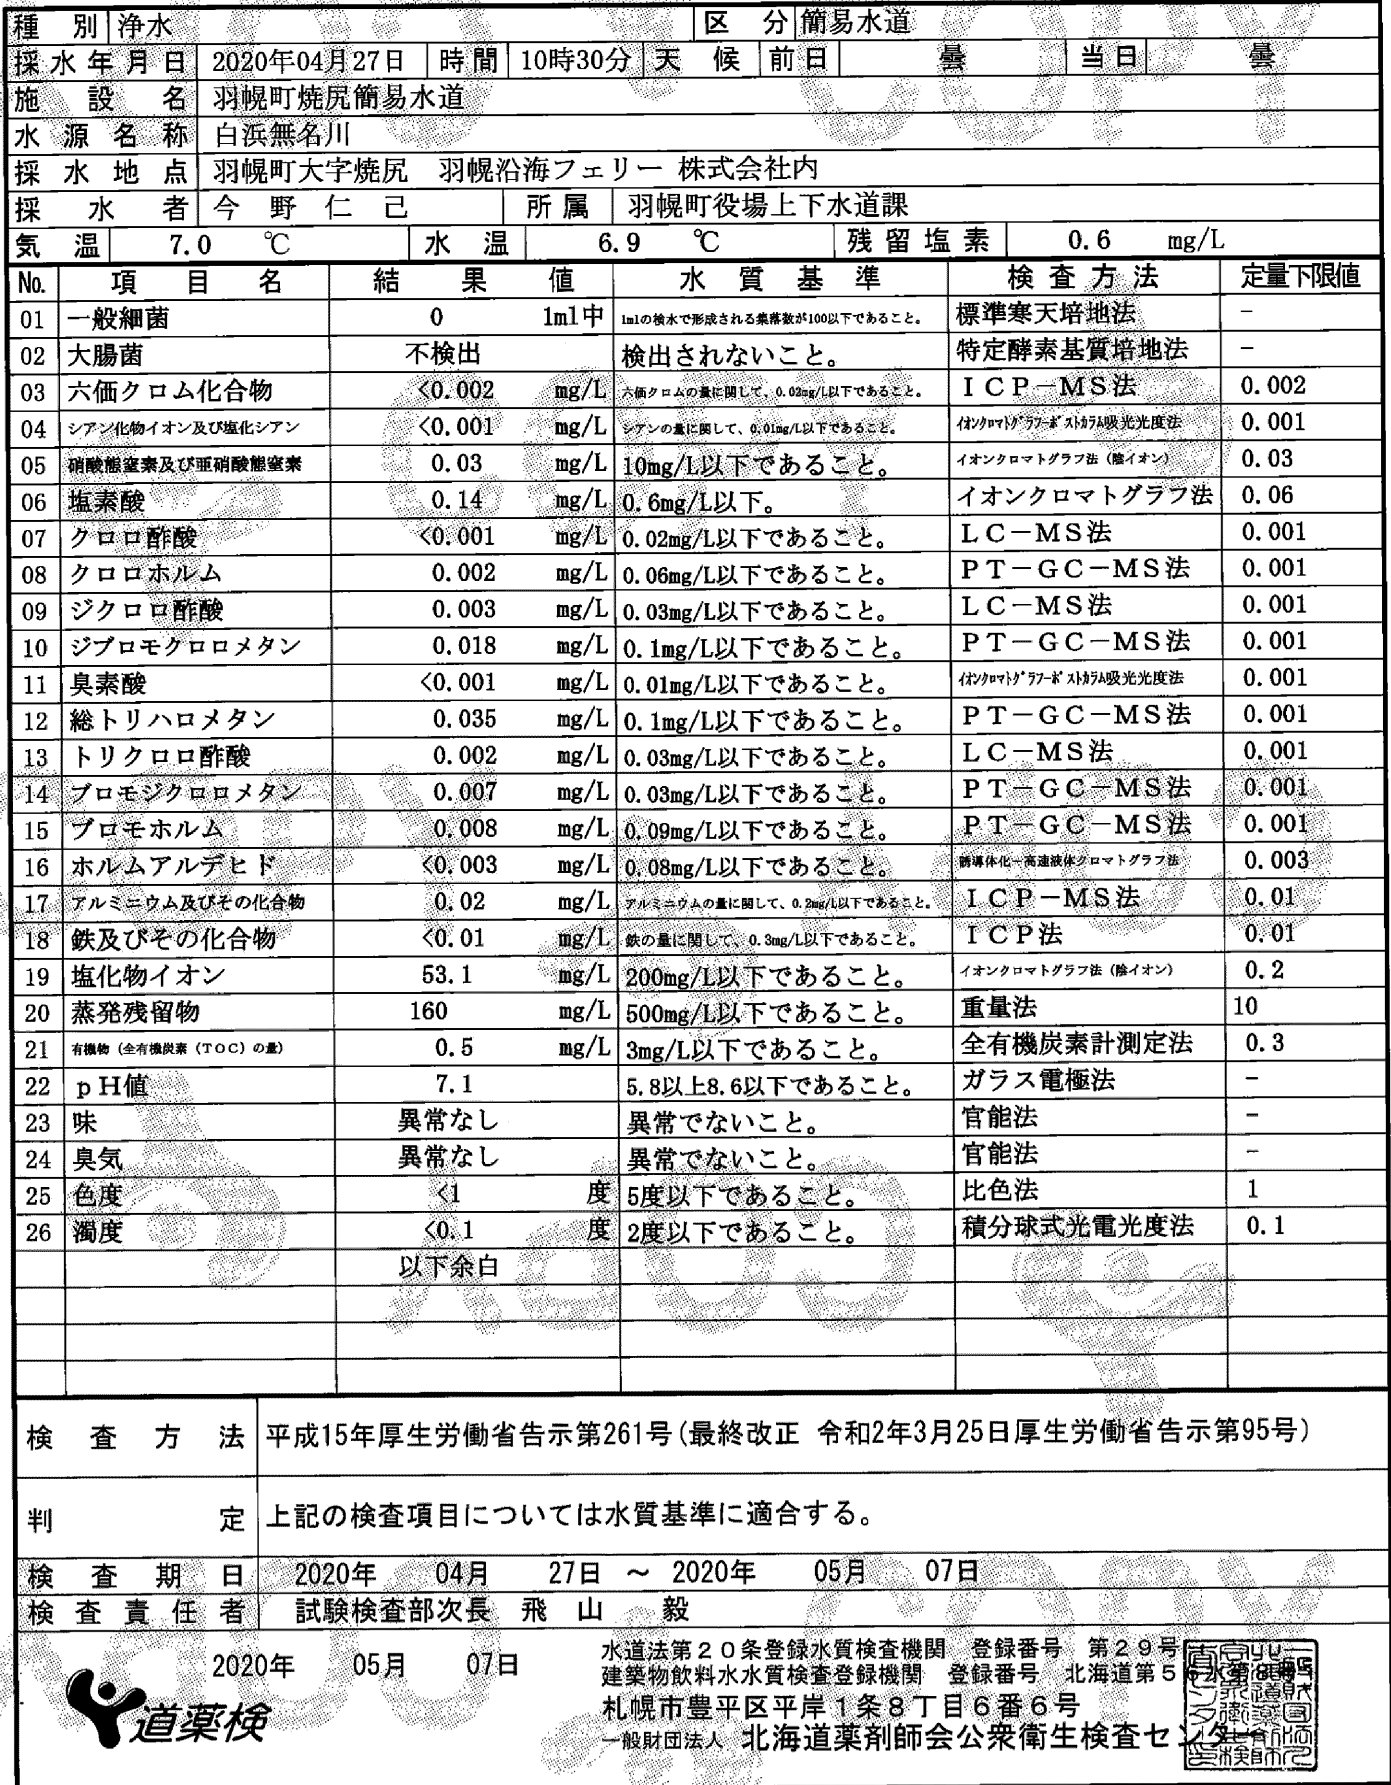 種別 浄水 区分 簡易水道
採水年月日 2020年04月27日 時間 10時30分 天候 前日 曇 当日 曇
施設名 羽幌町焼尻簡易水道
水源名称 白浜無名川
採水地点 羽幌町大字焼尻 羽幌沿海フェリー 株式会社内
採水者 今野仁己 所属 羽幌町役場上下水道課
気温 7.0 ℃ 水温 6.9 ℃ 残留塩素 0.6 mg/L
No. 項目名 結果値 水質基準 検査方法 定量下限値
01 一般細菌 0 1ml中 1mlの検水で形成される集落数が100以下であること。 標準寒天培地法 −
02 大腸菌 不検出 検出されないこと。 特定酵素基質培地法 −
03 六価クロム化合物 <0.002 mg/L 六価クロムの量に関して、0.02mg/L以下であること。 ICP−MS法 0.002
04 シアン化物イオン及び塩化シアン <0.001 mg/L シアンの量に関して、0.01mg/L以下であること。 ｲｵﾝｸﾛﾏﾄｸﾞﾗﾌｰﾎﾟｽﾄｶﾗﾑ吸光光度法 0.001
05 硝酸態窒素及び亜硝酸態窒素 0.03 mg/L 10mg/L以下であること。 イオンクロマトグラフ法（陰イオン） 0.03
06 塩素酸 0.14 mg/L 0.6mg/L以下。 イオンクロマトグラフ法 0.06
07 クロロ酢酸 <0.001 mg/L 0.02mg/L以下であること。 LC−MS法 0.001
08 クロロホルム 0.002 mg/L 0.06mg/L以下であること。 PT−GC−MS法 0.001
09 ジクロロ酢酸 0.003 mg/L 0.03mg/L以下であること。 LC−MS法 0.001
10 ジブロモクロロメタン 0.018 mg/L 0.1mg/L以下であること。 PT−GC−MS法 0.001
11 臭素酸 <0.001 mg/L 0.01mg/L以下であること。 ｲｵﾝｸﾛﾏﾄｸﾞﾗﾌｰﾎﾟｽﾄｶﾗﾑ吸光光度法 0.001
12 総トリハロメタン 0.035 mg/L 0.1mg/L以下であること。 PT−GC−MS法 0.001
13 トリクロロ酢酸 0.002 mg/L 0.03mg/L以下であること。 LC−MS法 0.001
14 ブロモジクロロメタン 0.007 mg/L 0.03mg/L以下であること。 PT−GC−MS法 0.001
15 ブロモホルム 0.008 mg/L 0.09mg/L以下であること。 PT−GC−MS法 0.001
16 ホルムアルデヒド <0.003 mg/L 0.08mg/L以下であること。 誘導体化−高速液体クロマトグラフ法 0.003
17 アルミニウム及びその化合物 0.02 mg/L アルミニウムの量に関して、0.2mg/L以下であること。 ICP−MS法 0.01
18 鉄及びその化合物 <0.01 mg/L 鉄の量に関して、0.3mg/L以下であること。 ICP法 0.01
19 塩化物イオン 53.1 mg/L 200mg/L以下であること。 イオンクロマトグラフ法（陰イオン） 0.2
20 蒸発残留物 160 mg/L 500mg/L以下であること。 重量法 10
21 有機物（全有機炭素（TOC）の量） 0.5 mg/L 3mg/L以下であること。 全有機炭素計測定法 0.3
22 pH値 7.1 5.8以上8.6以下であること。 ガラス電極法 −
23 味 異常なし 異常でないこと。 官能法 −
24 臭気 異常なし 異常でないこと。 官能法 −
25 色度 <1 度 5度以下であること。 比色法 1
26 濁度 <0.1 度 2度以下であること。 積分球式光電光度法 0.1
以下余白
検査方法 平成15年厚生労働省告示第261号(最終改正 令和2年3月25日厚生労働省告示第95号)
判定 上記の検査項目については水質基準に適合する。
検査期日 2020年 04月 27日 ～ 2020年 05月 07日
検査責任者 試験検査部次長 飛山 毅
2020年 05月 07日
水道法第20条登録水質検査機関 登録番号 第29号
建築物飲料水水質検査登録機関 登録番号 北海道第5
札幌市豊平区平岸1条8丁目6番6号
一般財団法人 北海道薬剤師会公衆衛生検査センター
道薬検